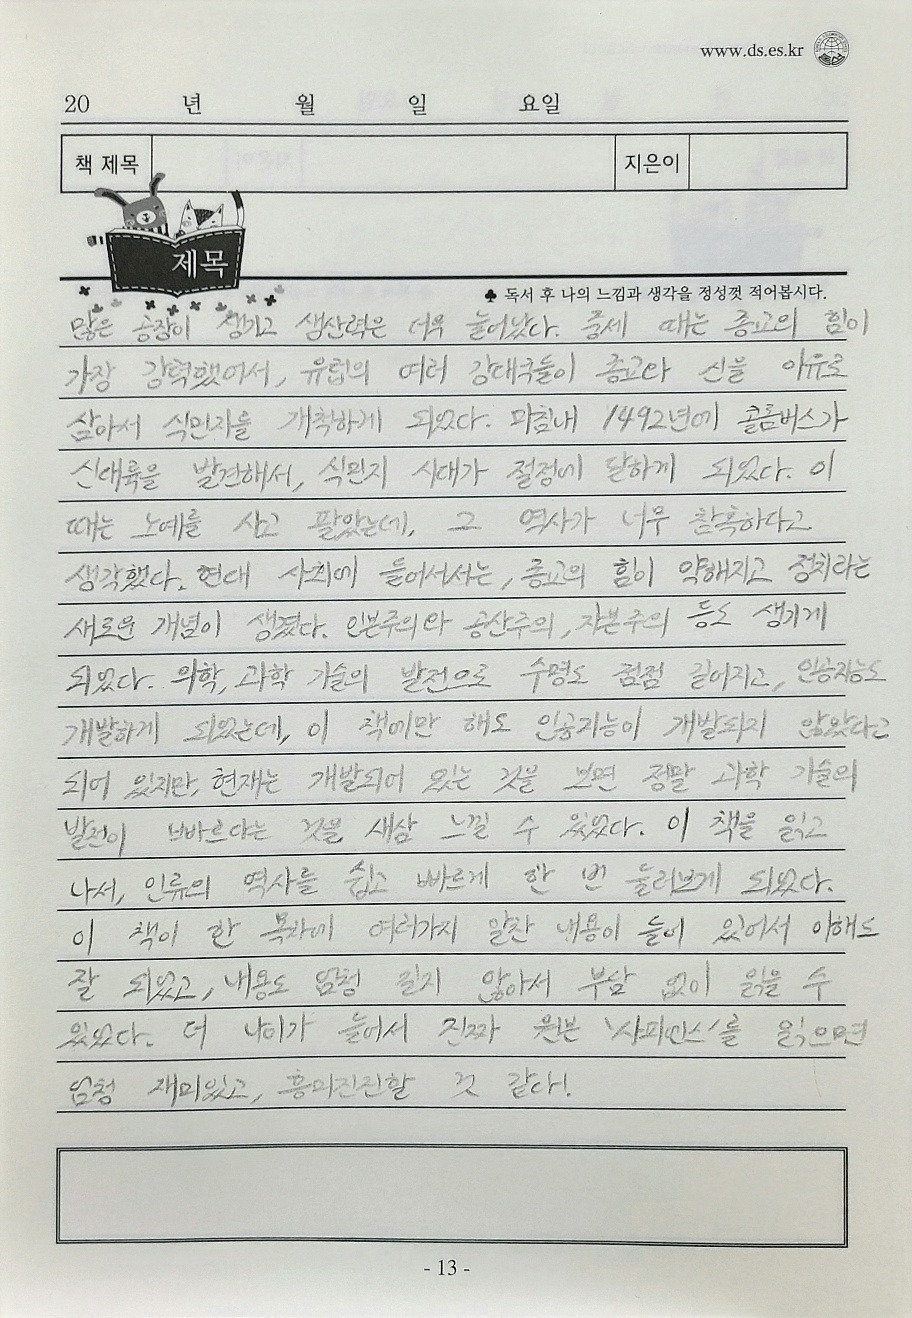 www.ds.es.kr
20 년 월 일 요일
책 제목 지은이
제목
♣ 독서 후 나의 느낌과 생각을 정성껏 적어봅시다.
많은 공장이 생기고 생산력은 더욱 늘어났다. 중세 때는 종교의 힘이
가장 강력했어서, 유럽의 여러 강대국들이 종교와 신을 이유로
삼아서 식민지를 개척하게 되었다. 마침내 1492년에 콜롬버스가
신대륙을 발견해서, 식민지 시대가 절정에 달하게 되었다. 이
때는 노예를 사고 팔았는데, 그 역사가 너무 참혹하다고
생각했다. 현대 사회에 들어서서는, 종교의 힘이 약해지고 정치라는
새로운 개념이 생겼다. 인본주의와 공산주의, 자본주의 등도 생기게
되었다. 의학, 과학 기술의 발전으로 수명도 점점 길어지고, 인공지능도
개발하게 되었는데, 이 책에만 해도 인공지능이 개발되지 않았다고
되어 있지만, 현재는 개발되어 있는 것을 보면 정말 과학 기술의
발전이 빠르다는 것을 새삼 느낄 수 있었다. 이 책을 읽고
나서, 인류의 역사를 쉽고 빠르게 한 번 둘러보게 되었다.
이 책이 한 목차에 여러가지 알찬 내용이 들어 있어서 이해도
잘 되었고, 내용도 엄청 길지 않아서 부담 없이 읽을 수
있었다. 더 나이가 들어서 진짜 원본 '사피엔스'를 읽으면
엄청 재미있고, 흥미진진할 것 같다!
- 13 -